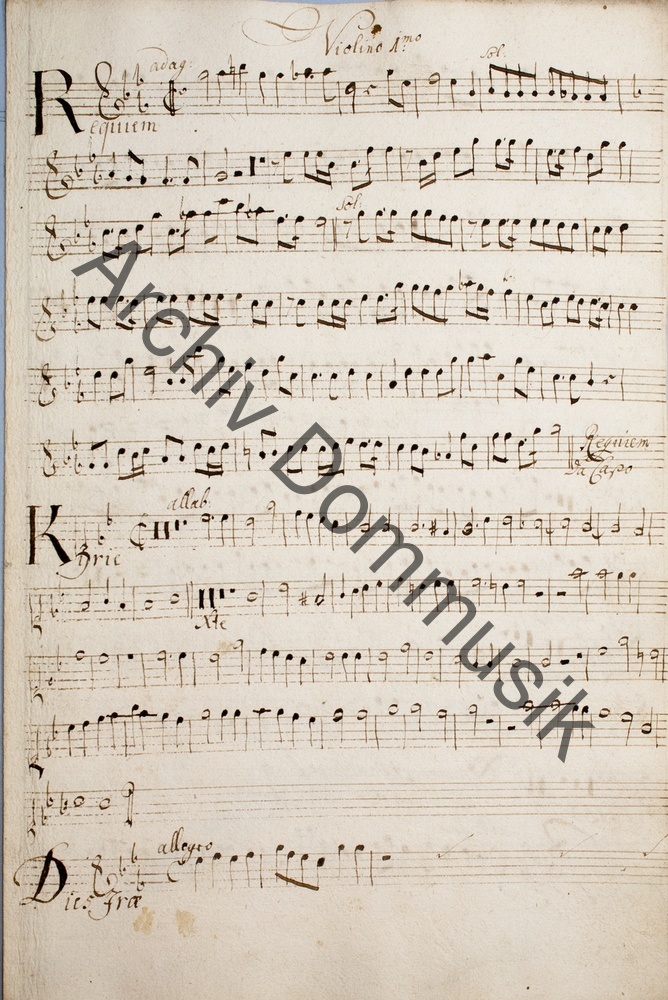 Violino 1mo
adag:
Sol:
Requiem
Sol:
Requiem
da Capo
allab:
Kyrie
Xte
allegro
Dies Iræ
Archiv Dommusik